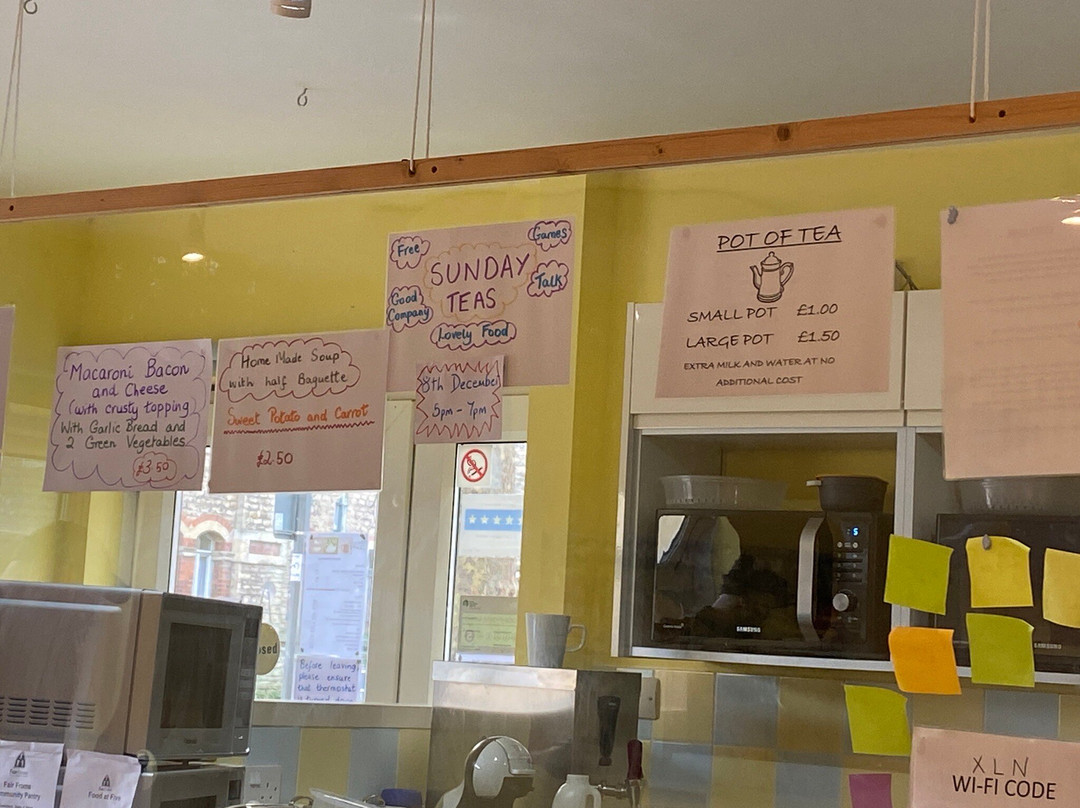 Macaroni Bacon
and Cheese
(with crusty topping)
With Garlic Bread and
2 Green Vegetables
£3.50
Home Made Soup
with half Baguette
Sweet Potato and Carrot
£2.50
Free
Games
SUNDAY
TEAS
Talk
Good
Company
Lovely Food
8th December
5pm - 7pm
POT OF TEA
SMALL POT £1.00
LARGE POT £1.50
EXTRA MILK AND WATER AT NO
ADDITIONAL COST
SAMSUNG
SAMSUNG
Before leaving,
please ensure
that thermostat
XLN
WI-FI CODE
Fair Frome
Food at Five